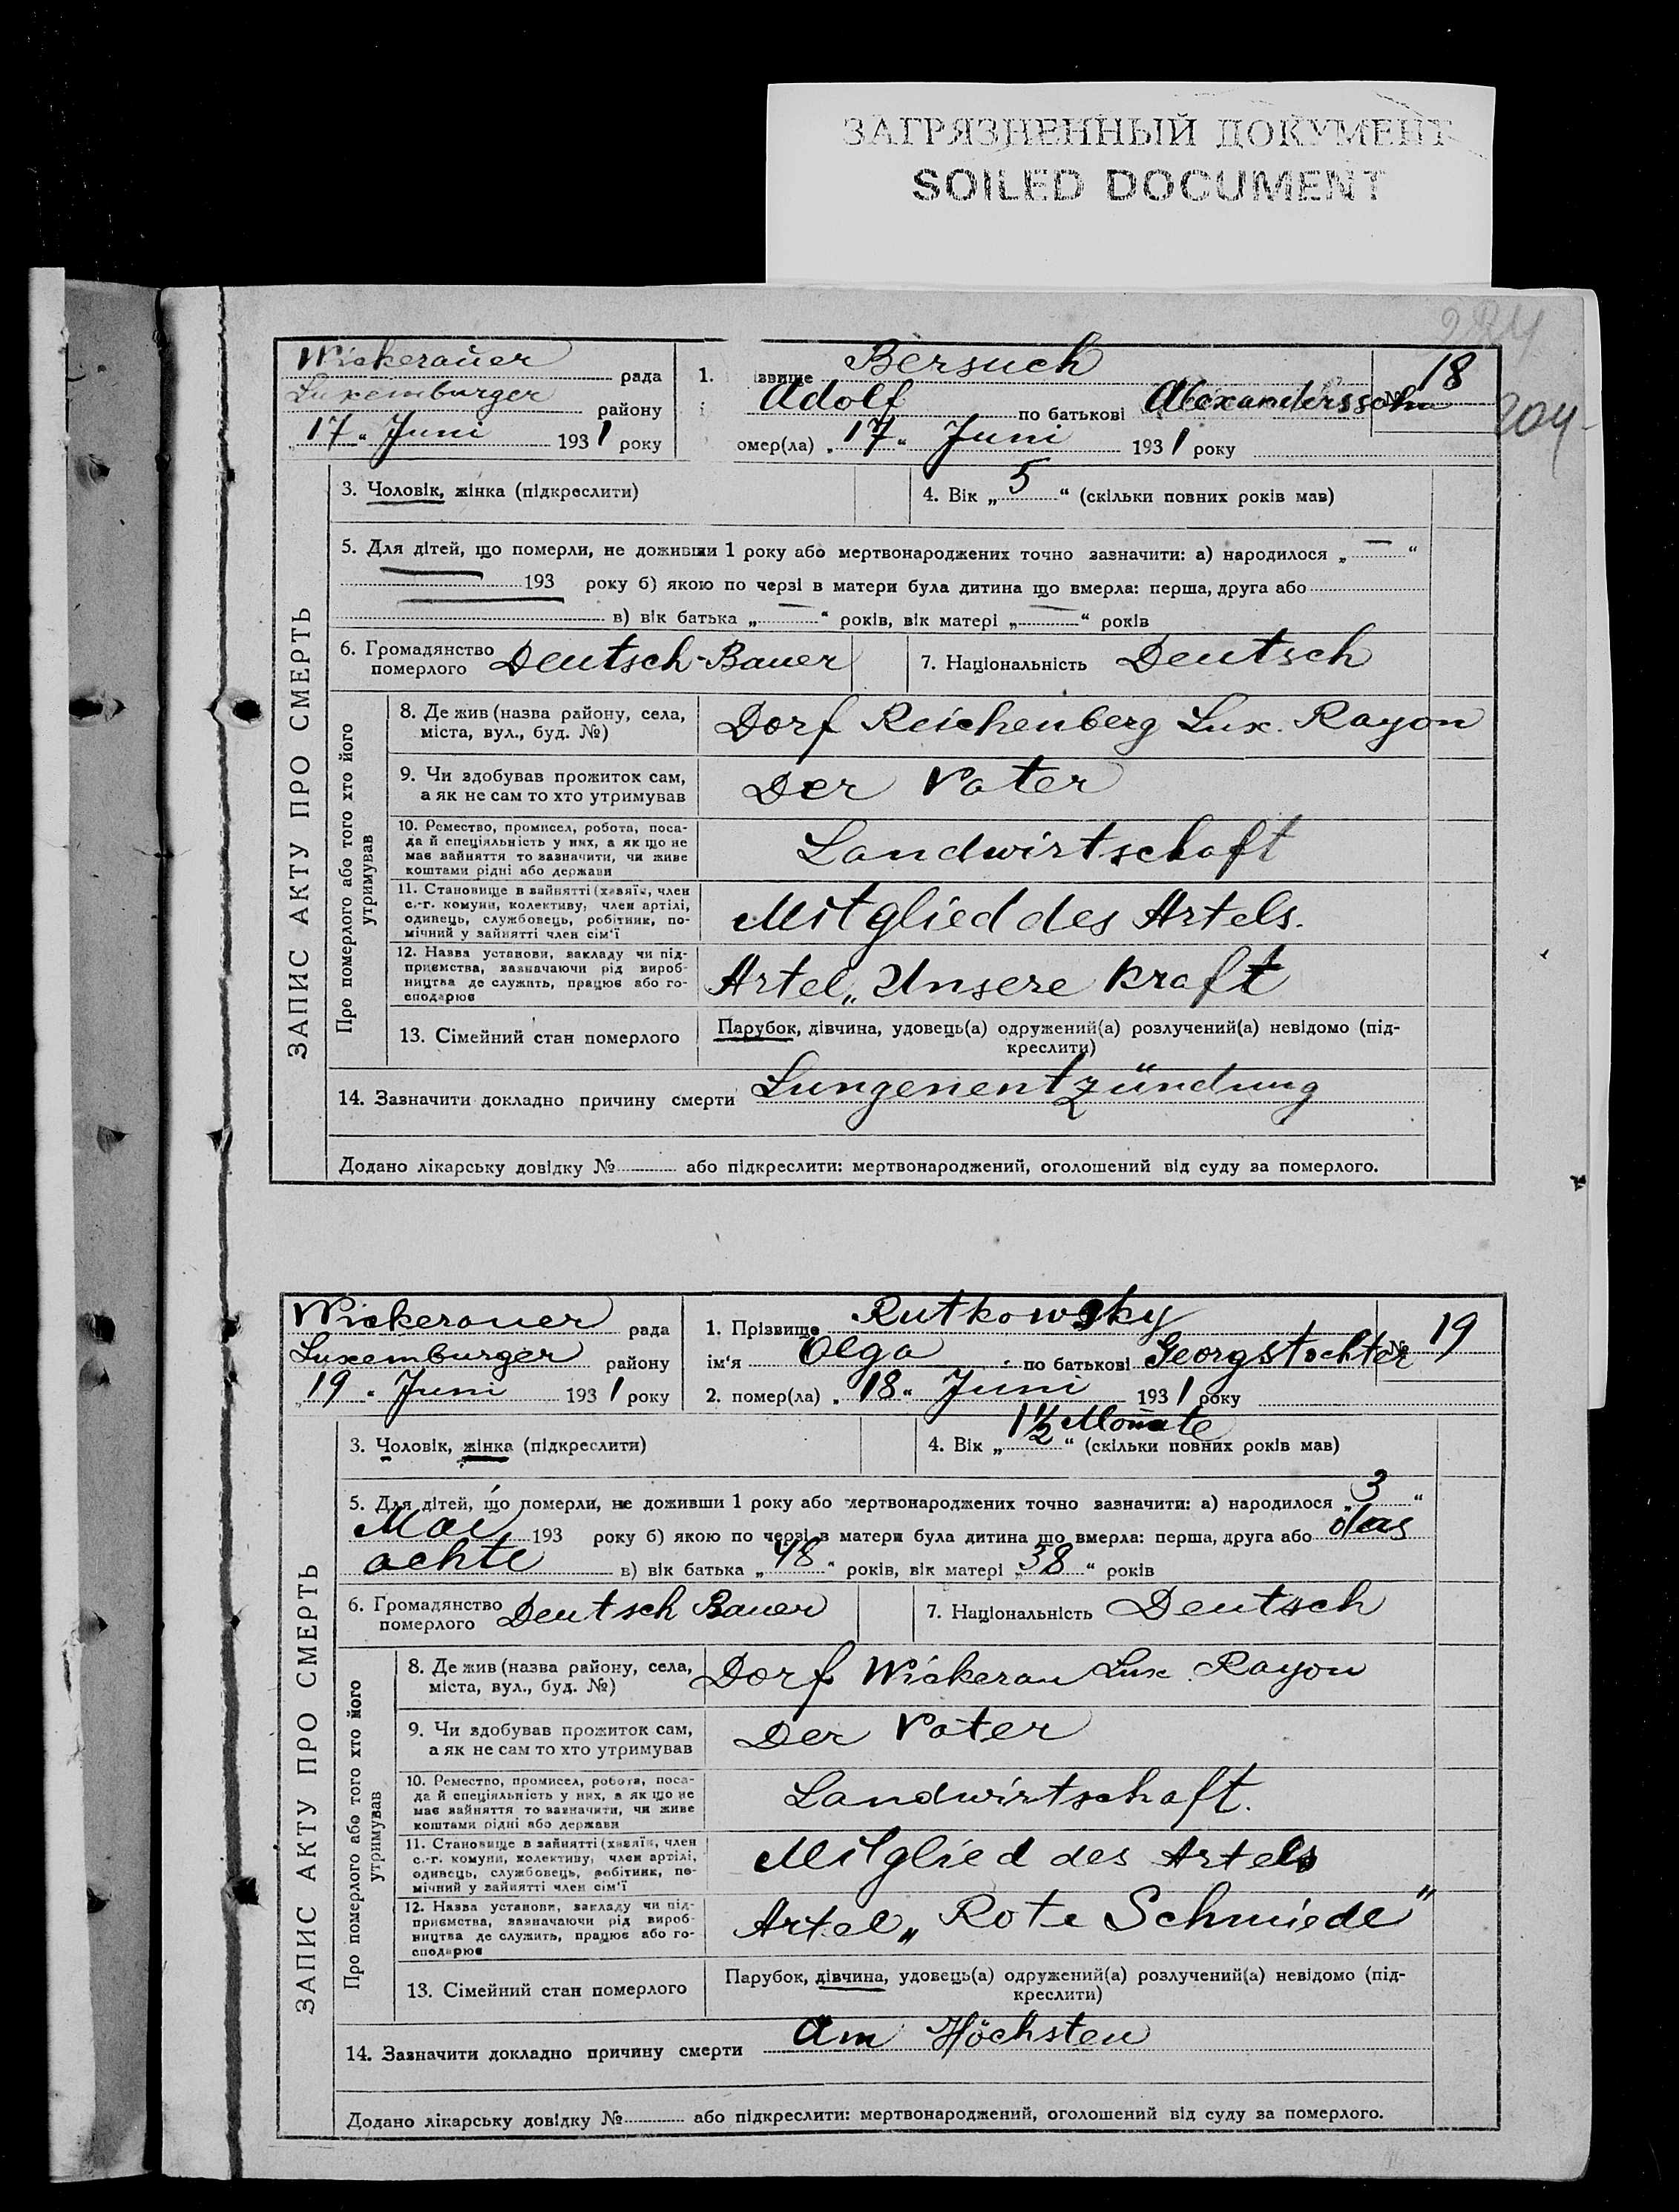 ЗАГРЯЗНЕННЫЙ ДОКУМЕНТ
SOILED DOCUMENT
204
ЗАПИС АКТУ ПРО СМЕРТЬ
Wickerauer рада
Luxemburger району
„17“ Juni 1931 року
1. ізвище Bersuch
Adolf по батькові Alexanderssohn
№ 18
омер(ла) „17“ Juni 1931 року
3. Чоловік, жінка (підкреслити)
4. Вік „5“ (скільки повних років мав)
5. Для дітей, що померли, не доживши 1 року або мертвонароджених точно зазначити: а) народилося „—“
193 року б) якою по черзі в матери була дитина що вмерла: перша, друга або
в) вік батька „—“ років, вік матері „—“ років
6. Громадянство померлого Deutsch-Bauer
7. Національність Deutsch
Про померлого або того хто його утримував
8. Де жив (назва району, села, міста, вул., буд. №) Dorf Reichenberg Lux. Rayon
9. Чи здобував прожиток сам, а як не сам то хто утримував Der Vater
10. Ремество, промисел, робота, поса-
да й спеціяльність у них, а як що не
має зайняття то зазначити, чи живе
коштами рідні або держави
Landwirtschaft
11. Становище в зайнятті (хазяїн, член
с.-г. комуни, колективу, член артілі,
одинець, службовець, робітник, по-
мічний у зайнятті член сім'ї
Mitglied des Artels.
12. Назва установи, закладу чи під-
приємства, зазначаючи рід вироб-
ництва де служить, працює або го-
сподарює
Artel „Unsere Kraft
13. Сімейний стан померлого
Парубок, дівчина, удовець(а) одружений(а) розлучений(а) невідомо (під-
креслити)
14. Зазначити докладно причину смерти Lungenentzündung
Додано лікарську довідку № або підкреслити: мертвонароджений, оголошений від суду за померлого.
ЗАПИС АКТУ ПРО СМЕРТЬ
Wickerauer рада
Luxemburger району
„19“ Juni 1931 року
1. Прізвище Rutkowsky
ім'я Olga по батькові Georgstochter
№ 19
2. помер(ла) „18“ Juni 1931 року
3. Чоловік, жінка (підкреслити)
4. Вік „1½ Monate“ (скільки повних років мав)
5. Для дітей, що померли, не доживши 1 року або мертвонароджених точно зазначити: а) народилося „3“
Mai 193 року б) якою по черзі в матери була дитина що вмерла: перша, друга або das
achte в) вік батька „48“ років, вік матері „38“ років
6. Громадянство померлого Deutsch Bauer
7. Національність Deutsch
Про померлого або того хто його утримував
8. Де жив (назва району, села, міста, вул., буд. №) Dorf Wickerau Lux. Rayon
9. Чи здобував прожиток сам, а як не сам то хто утримував Der Vater
10. Ремество, промисел, робота, поса-
да й спеціяльність у них, а як що не
має зайняття то зазначити, чи живе
коштами рідні або держави
Landwirtschaft.
11. Становище в зайнятті (хазяїн, член
с.-г. комуни, колективу, член артілі,
одинець, службовець, робітник, по-
мічний у зайнятті член сім'ї
Mitglied des Artels
12. Назва установи, закладу чи під-
приємства, зазначаючи рід вироб-
ництва де служить, працює або го-
сподарює
Artel „Rote Schmiede"
13. Сімейний стан померлого
Парубок, дівчина, удовець(а) одружений(а) розлучений(а) невідомо (під-
креслити)
14. Зазначити докладно причину смерти Am Höchsten
Додано лікарську довідку № або підкреслити: мертвонароджений, оголошений від суду за померлого.